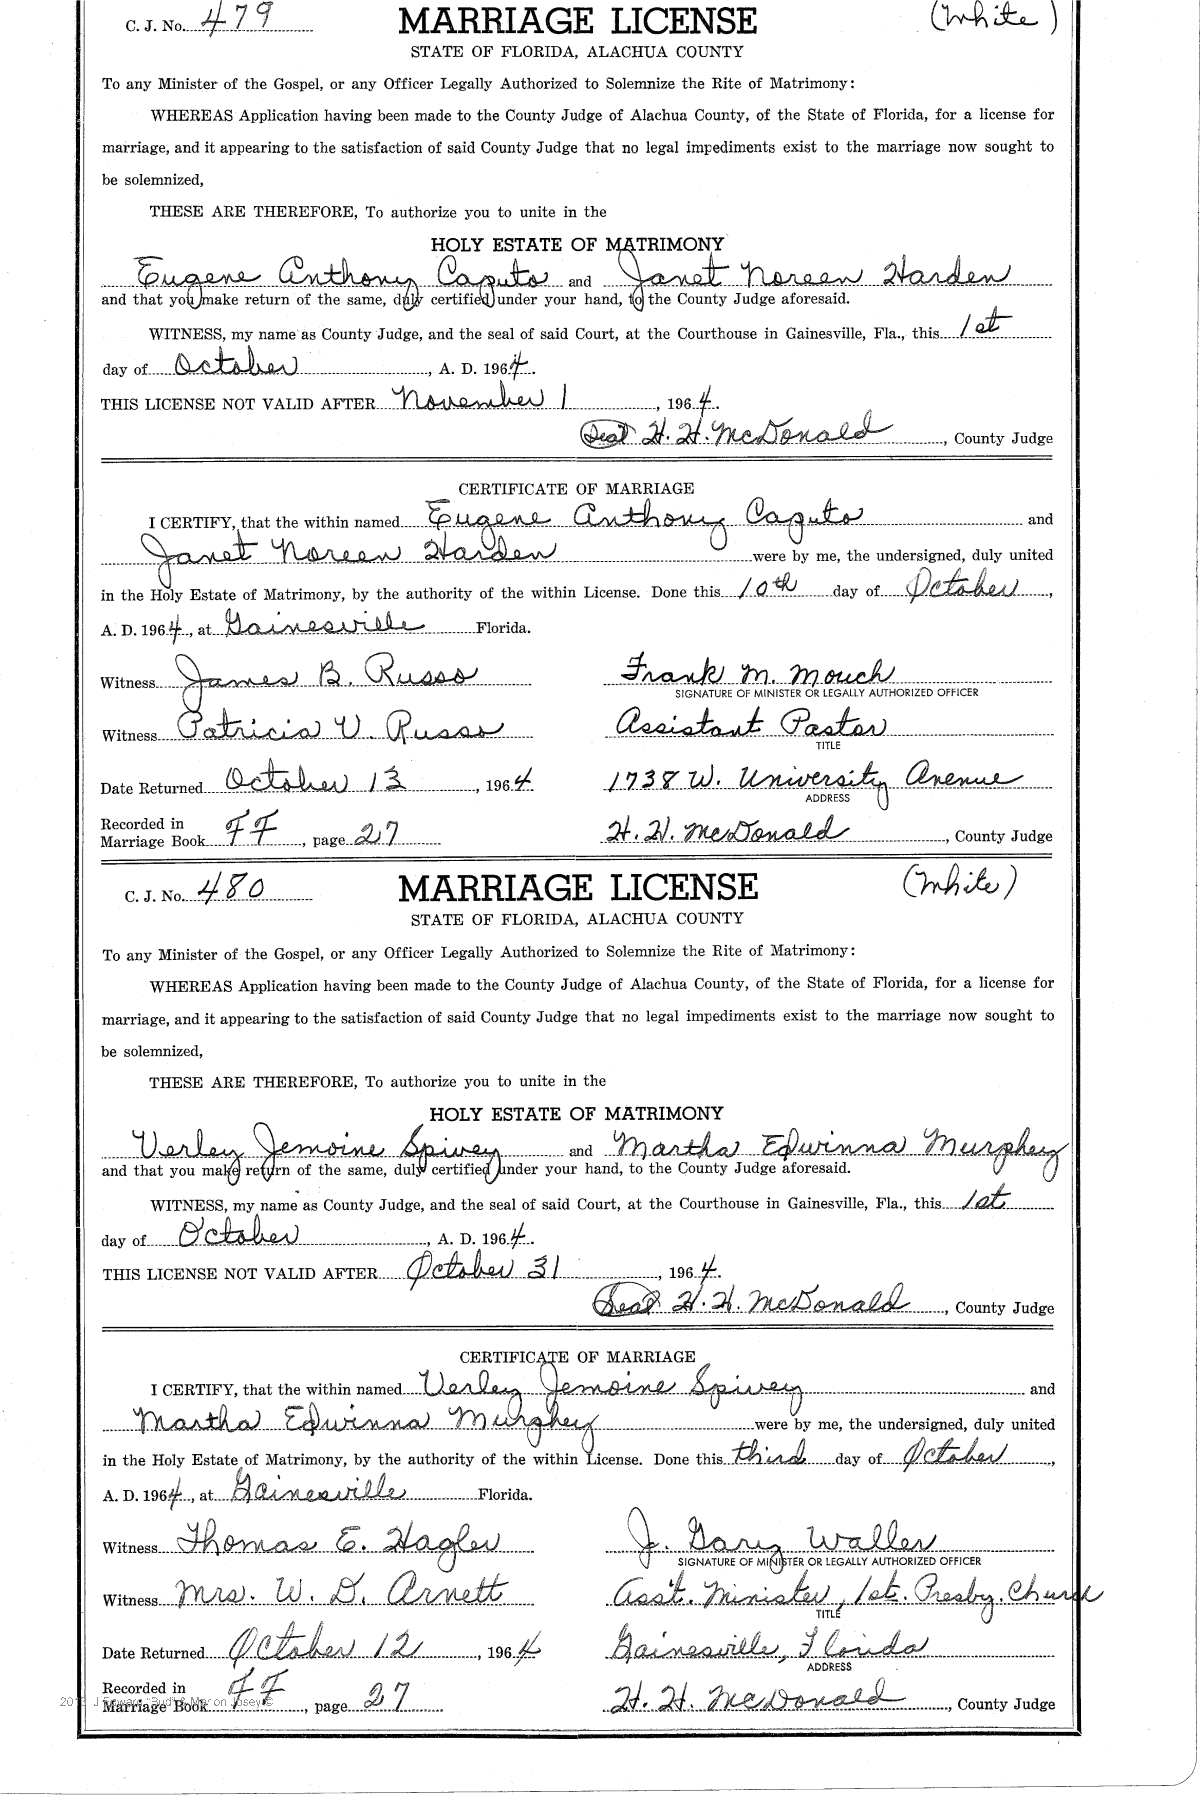 C. J. No. 479 MARRIAGE LICENSE (White)
STATE OF FLORIDA, ALACHUA COUNTY
To any Minister of the Gospel, or any Officer Legally Authorized to Solemnize the Rite of Matrimony:
WHEREAS Application having been made to the County Judge of Alachua County, of the State of Florida, for a license for
marriage, and it appearing to the satisfaction of said County Judge that no legal impediments exist to the marriage now sought to
be solemnized,
THESE ARE THEREFORE, To authorize you to unite in the
HOLY ESTATE OF MATRIMONY
Eugene Anthony Caputo and Janet Noreen Harden
and that you make return of the same, duly certified under your hand, to the County Judge aforesaid.
WITNESS, my name as County Judge, and the seal of said Court, at the Courthouse in Gainesville, Fla., this 1st
day of October, A. D. 1964.
THIS LICENSE NOT VALID AFTER November 1, 1964.
Seal H. H. McDonald, County Judge
CERTIFICATE OF MARRIAGE
I CERTIFY, that the within named Eugene Anthony Caputo and
Janet Noreen Harden were by me, the undersigned, duly united
in the Holy Estate of Matrimony, by the authority of the within License. Done this 10th day of October,
A. D. 1964, at Gainesville Florida.
Witness James B. Russo Frank M. Mouch
SIGNATURE OF MINISTER OR LEGALLY AUTHORIZED OFFICER
Witness Patricia V. Russo Assistant Pastor
TITLE
Date Returned October 13, 1964 1738 W. University Avenue
ADDRESS
Recorded in
Marriage Book FF, page 27 H. H. McDonald, County Judge
C. J. No. 480 MARRIAGE LICENSE (White)
STATE OF FLORIDA, ALACHUA COUNTY
To any Minister of the Gospel, or any Officer Legally Authorized to Solemnize the Rite of Matrimony:
WHEREAS Application having been made to the County Judge of Alachua County, of the State of Florida, for a license for
marriage, and it appearing to the satisfaction of said County Judge that no legal impediments exist to the marriage now sought to
be solemnized,
THESE ARE THEREFORE, To authorize you to unite in the
HOLY ESTATE OF MATRIMONY
Verley Jemoine Spivey and Martha Edwinna Murphey
and that you make return of the same, duly certified under your hand, to the County Judge aforesaid.
WITNESS, my name as County Judge, and the seal of said Court, at the Courthouse in Gainesville, Fla., this 1st
day of October, A. D. 1964.
THIS LICENSE NOT VALID AFTER October 31, 1964.
Seal H. H. McDonald, County Judge
CERTIFICATE OF MARRIAGE
I CERTIFY, that the within named Verley Jemoine Spivey and
Martha Edwinna Murphey were by me, the undersigned, duly united
in the Holy Estate of Matrimony, by the authority of the within License. Done this third day of October,
A. D. 1964, at Gainesville Florida.
Witness Thomas E. Hagler J. Gary Waller
SIGNATURE OF MINISTER OR LEGALLY AUTHORIZED OFFICER
Witness Mrs. W. D. Arnett Ass't. Minister, 1st. Presby. Church
TITLE
Date Returned October 12, 1964 Gainesville, Florida
ADDRESS
Recorded in
Marriage Book FF, page 27 H. H. McDonald, County Judge